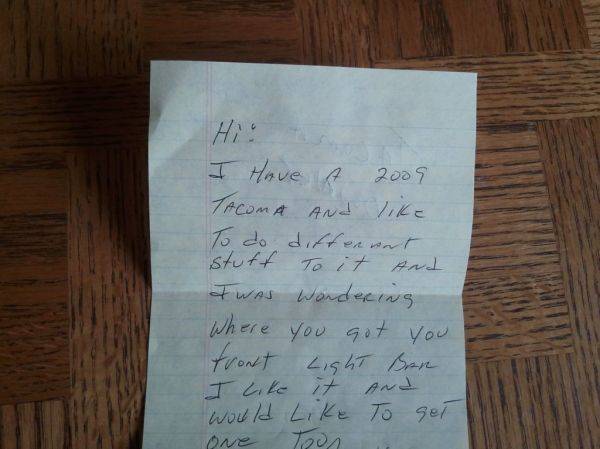 Hi:
I HAVE A 2009
TACOMA AND liKE
To do differant
stuff To it AND
I WAS WONDERING
Where you got you
front LighT BAR
I LiKE it AND
would LiKE To get
ONE Too